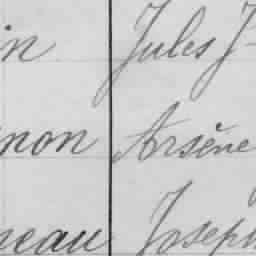 in Jules J
non Arsène
neau Joseph